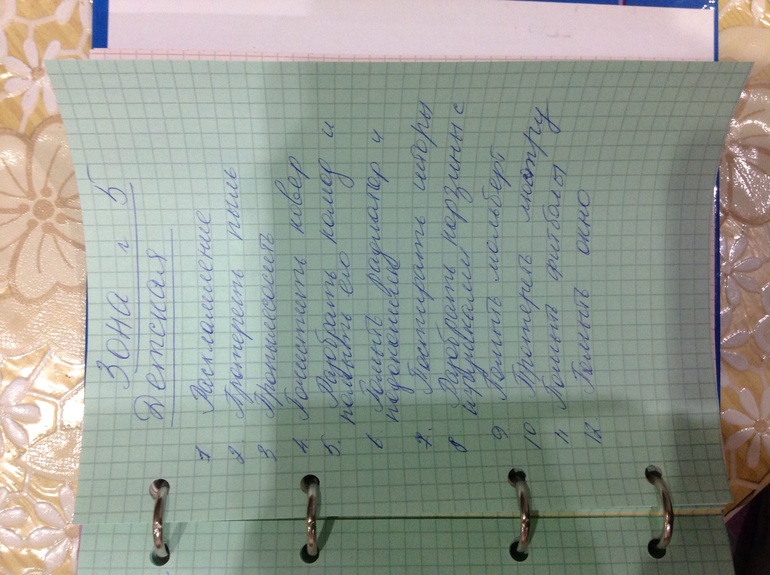 Зона № 5
Детская
1 Расхламление
2. Протереть пыль
3 Пропылесосить
4. Почистить ковер
5. Разобрать комод и
помыть его
6 Помыть радиатор и
подоконник
7. Постирать шторы
8 Разобрать корзины с
игрушками
9 Помыть мольберт
10 Протереть люстру
11 Помыть фитболы
12 Помыть окно